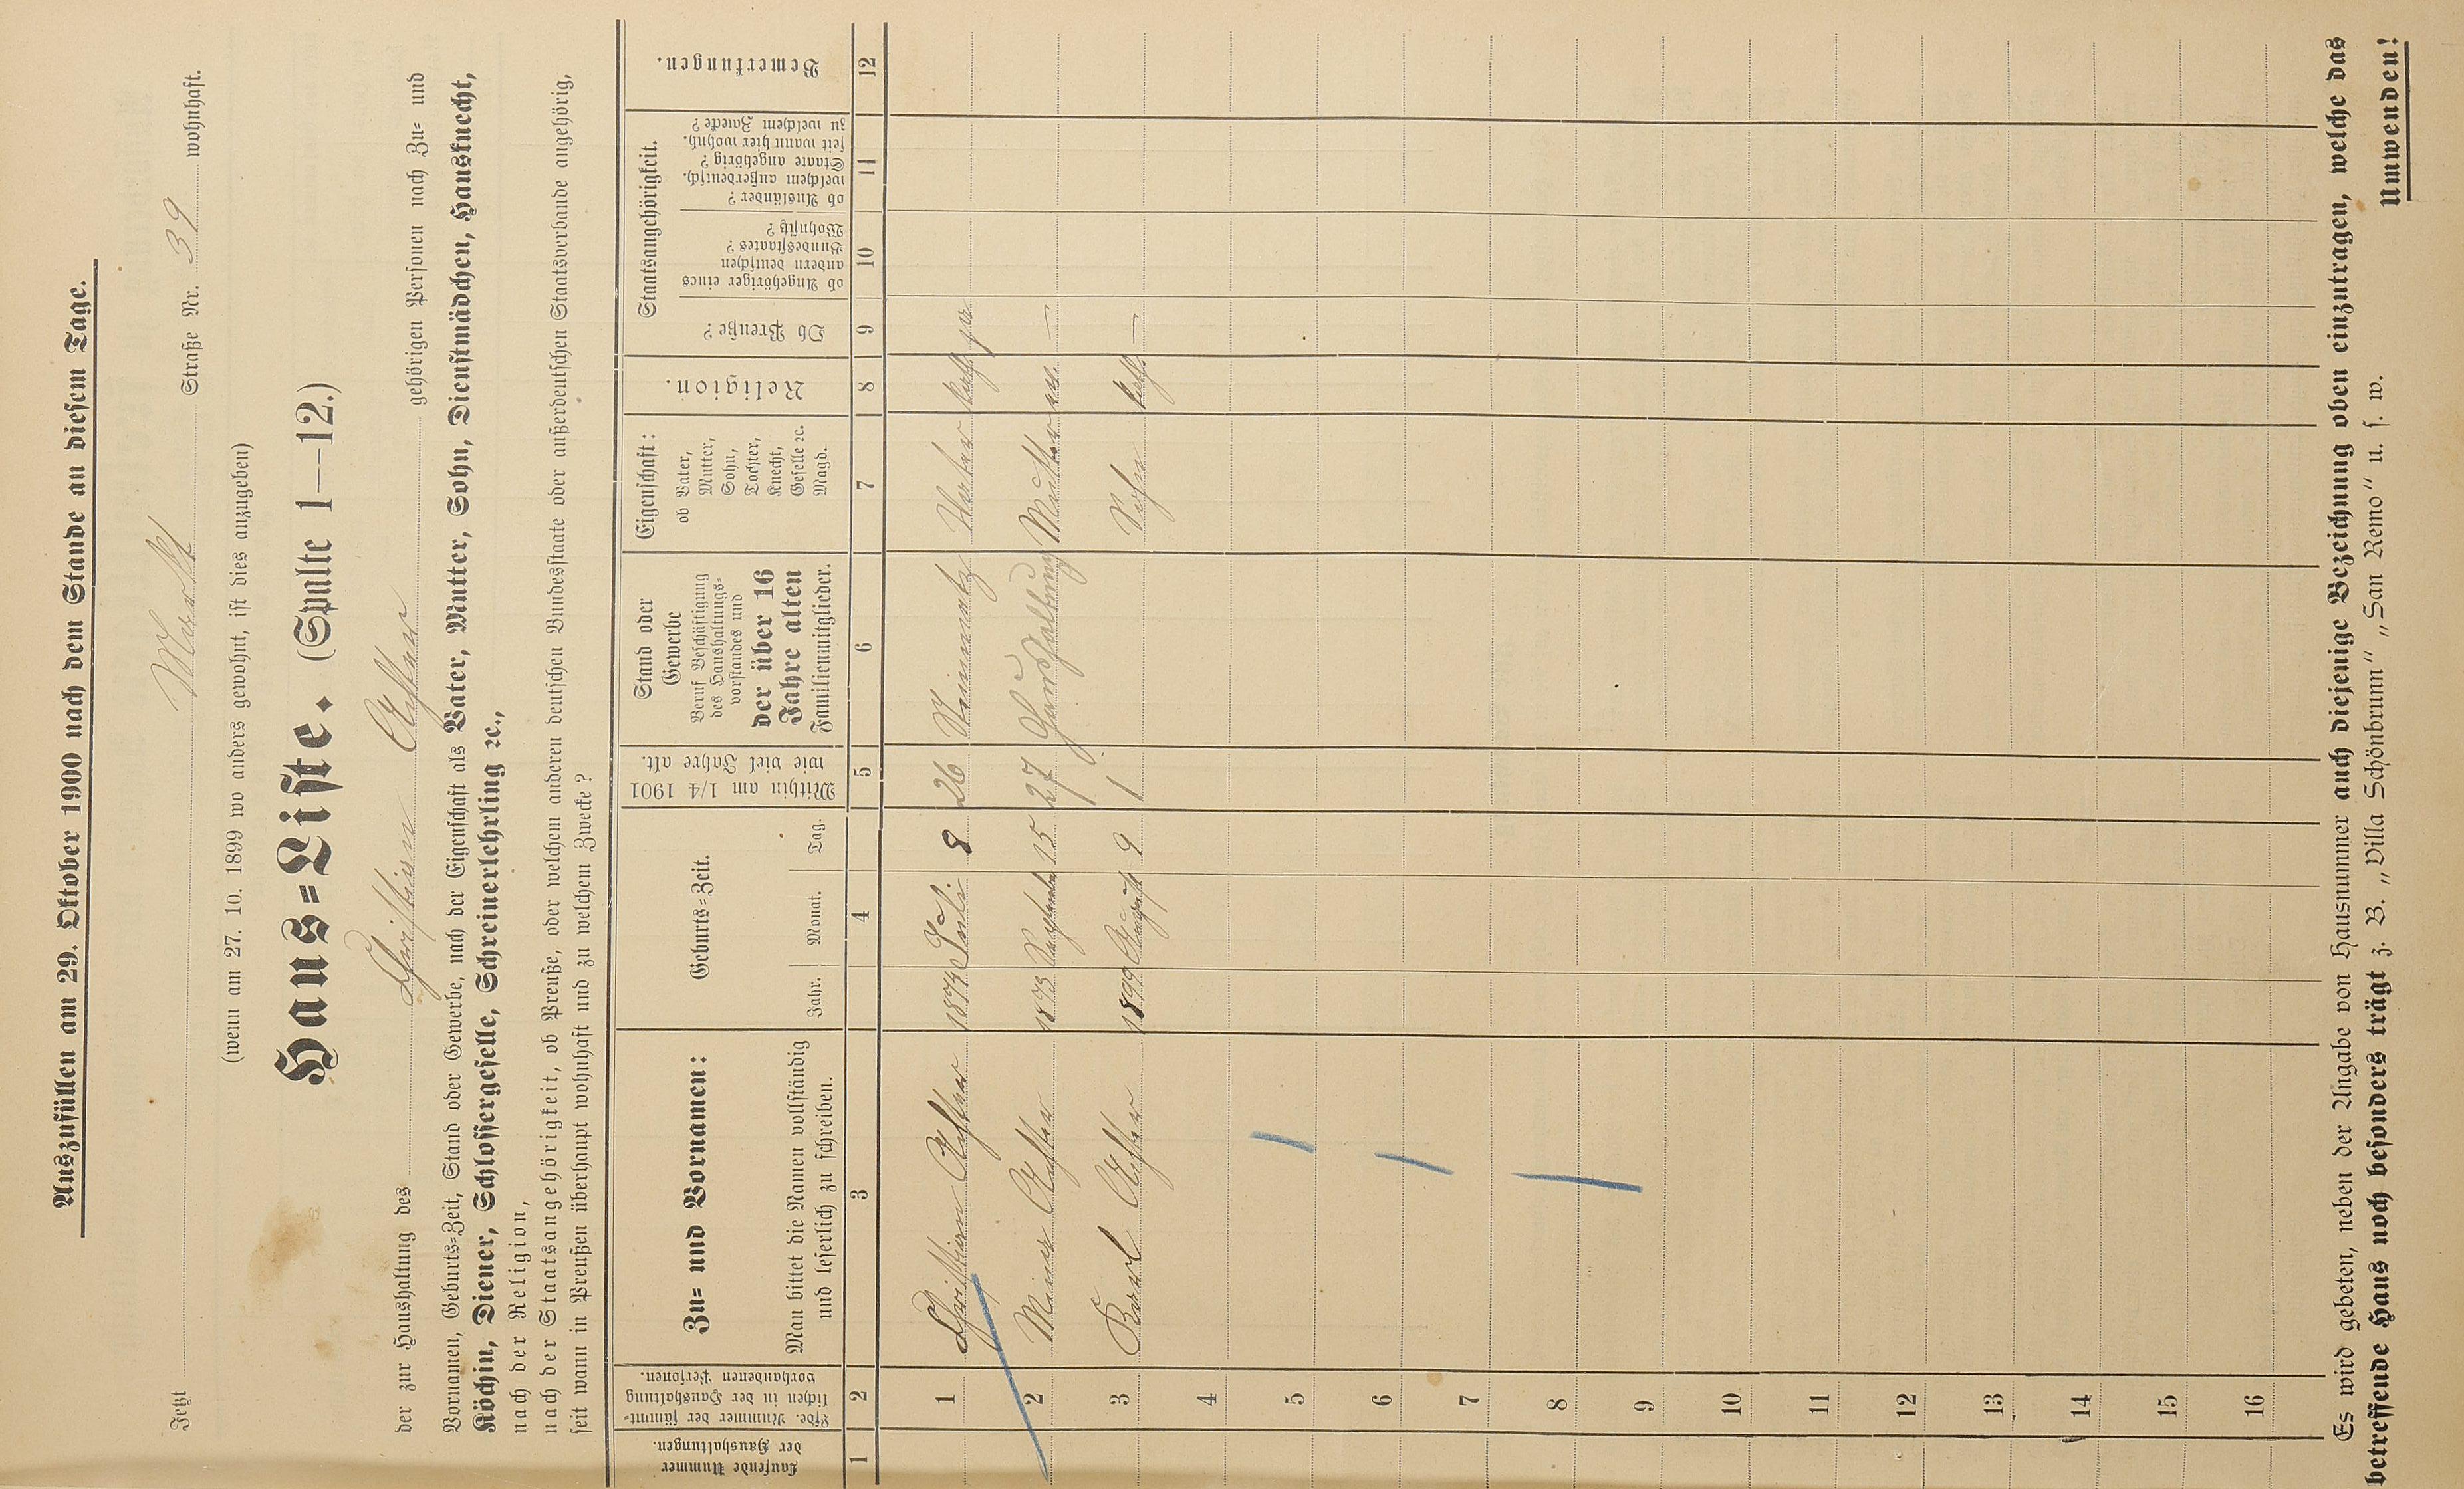 Auszufüllen am 29. Oktober 1900 nach dem Stande an diesem Tage.
Jetzt Markt Straße Nr. 39 wohnhaft.
(wenn am 27. 10. 1899 wo anders gewohnt, ist dies anzugeben)
Haus=Liste. (Spalte 1—12.)
der zur Haushaltung des Christian gehörigen Personen nach Zu= und
Vornamen, Geburts=Zeit, Stand oder Gewerbe, nach der Eigenschaft als Vater, Mutter, Sohn, Dienstmädchen, Hausknecht,
Köchin, Diener, Schlossergeselle, Schreinerlehrling ꝛc.,
nach der Religion,
nach der Staatsangehörigkeit, ob Preuße, oder welchem anderen deutschen Bundesstaate oder außerdeutschen Staatsverbande angehörig,
seit wann in Preußen überhaupt wohnhaft und zu welchem Zwecke?
Laufende Nummer
der Haushaltungen.
Lfde. Nummer der sämmt=
lichen in der Haushaltung
vorhandenen Personen.
Zu= und Vornamen:
Man bittet die Namen vollständig
und leserlich zu schreiben.
Geburts=Zeit.
Jahr. Monat. Tag.
Mithin am 1/4 1901
wie viel Jahre alt.
Stand oder
Gewerbe
Beruf Beschäftigung
des Haushaltungs=
vorstandes und
der über 16
Jahre alten
Familienmitglieder.
Eigenschaft:
ob Vater,
Mutter,
Sohn,
Tochter,
Knecht,
Geselle ꝛc.
Magd.
Religion.
Staatsangehörigkeit.
Ob Preuße?
ob Angehöriger eines
andern deutschen
Bundesstaates?
Wohnsitz?
ob Ausländer?
welchem außerdeutsch.
Staate angehörig?
seit wann hier wohnh.
zu welchem Zwecke?
Bemerkungen.
1 2 3 4 5 6 7 8 9 10 11 12
1 Christian 1874 Juli 8 26 Vater kath. ja
2 Mina 1873 September 15 27 Haushaltung Mutter ev. —
3 Karl 1899 August 9 1 Sohn kath. —
4
5
6
7
8
9
10
11
12
13
14
15
16
Es wird gebeten, neben der Angabe von Hausnummer auch diejenige Bezeichnung oben einzutragen, welche das
betreffende Haus noch besonders trägt z. B. „Villa Schönbrunn" „San Remo" u. s. w.
Umwenden!